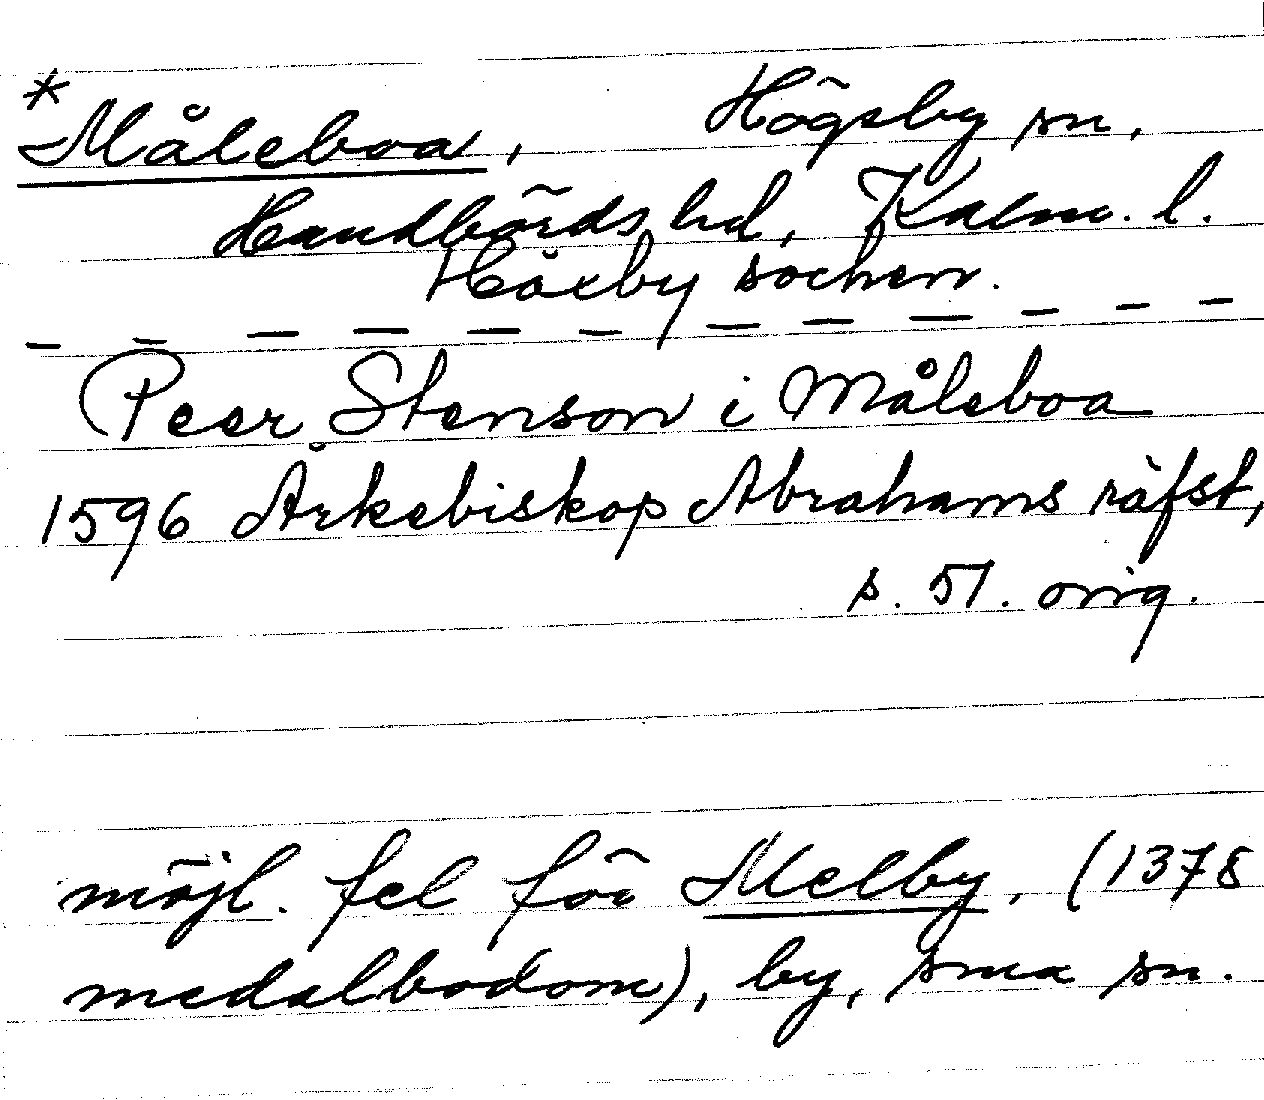 * Måleboa, Högsby sn,
Handbörds hd, Kalm. l.
Håxby sochen.
Peer Stenson i Måleboa
1596 Ärkebiskop Abrahams räfst,
s. 51. orig.
möjl. fel för Melby, (1378
medalbodom), by, sma sn.